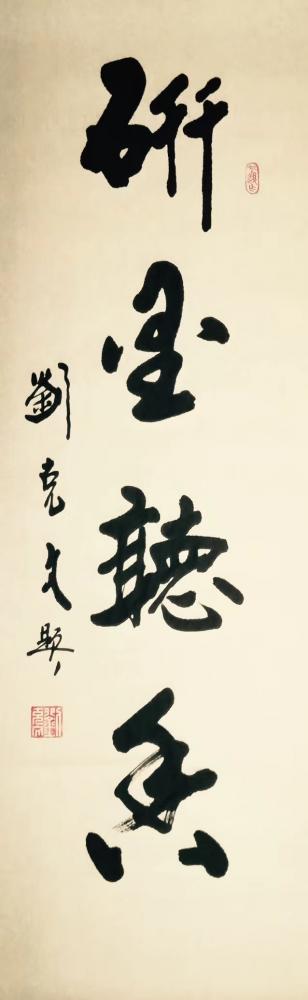 研墨聽香
劉克文題